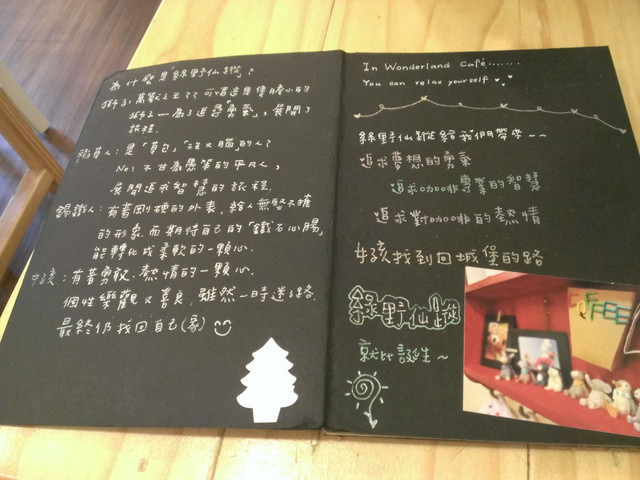 為什麼是「綠野仙蹤」?
獅子:萬獸之王??可嘆這是隻膽小的
獅子—為了追尋「勇氣」,展開了
旅程.
稻草人:是「草包」、沒大腦的人?
No! 不甘為愚笨的平凡人,
展開追求智慧的旅程.
錫鐵人:有著剛硬的外表,給人無堅不摧
的形象.而期待自己的「鐵石心腸」
能轉化成柔軟的一顆心.
女孩:有著勇敢、熱情的一顆心.
個性樂觀又善良,雖然一時迷了路.
最終仍找回自己(家)
In Wonderland Café.......
You can relax yourself
綠野仙蹤給我們帶來~~
追求夢想的勇氣
追求咖啡專業的智慧
追求對咖啡的熱情
女孩找到回城堡的路
綠野仙蹤
就此誕生~
COFFEE